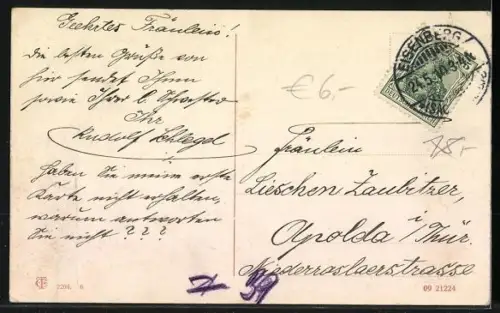 Geehrtes Fräulein!
die besten Grüße von
hier sendet Ihnen
sowie Ihrer l. Schwester
Ihr
Rudolf Schlegel
Haben Sie meine erste
Karte nicht erhalten,
warum antworten
Sie nicht???
EISENBERG
€6,-
18,-
Fräulein
Lieschen Zaubitzer,
Apolda i/Thür.
Niederroslaerstrasse
39
09 21224